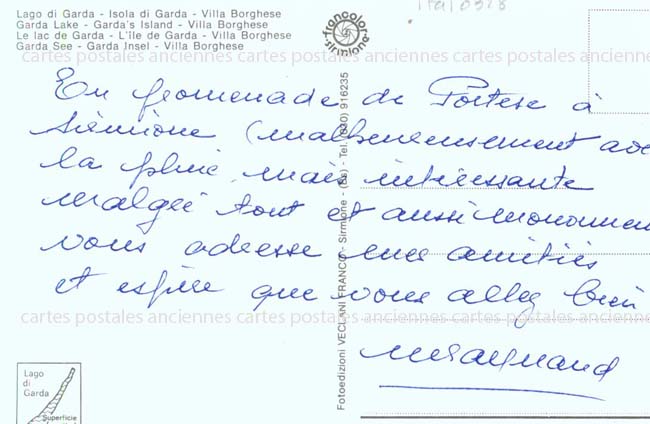 Lago di Garda - Isola di Garda - Villa Borghese
Garda Lake - Garda's Island - Villa Borghese
Le lac de Garda - L'île de Garda - Villa Borghese
Garda See - Garda Insel - Villa Borghese
francolor sirmione
ita/0328
cartes postales anciennes cartes postales anciennes cartes postales anciennes
En promenade de Portese à
Sirmione (malheureusement ave
la pluie, mais intéressante
malgré tout et aussi
vous adresse mes amitiés
et espère que vous allez bien
cartes postales anciennes cartes postales anciennes cartes postales anciennes
Fotoedizioni VECLANI FRANCO - Sirmione - (BS) - Tel. (030) 916235
Lago
di
Garda
Superficie